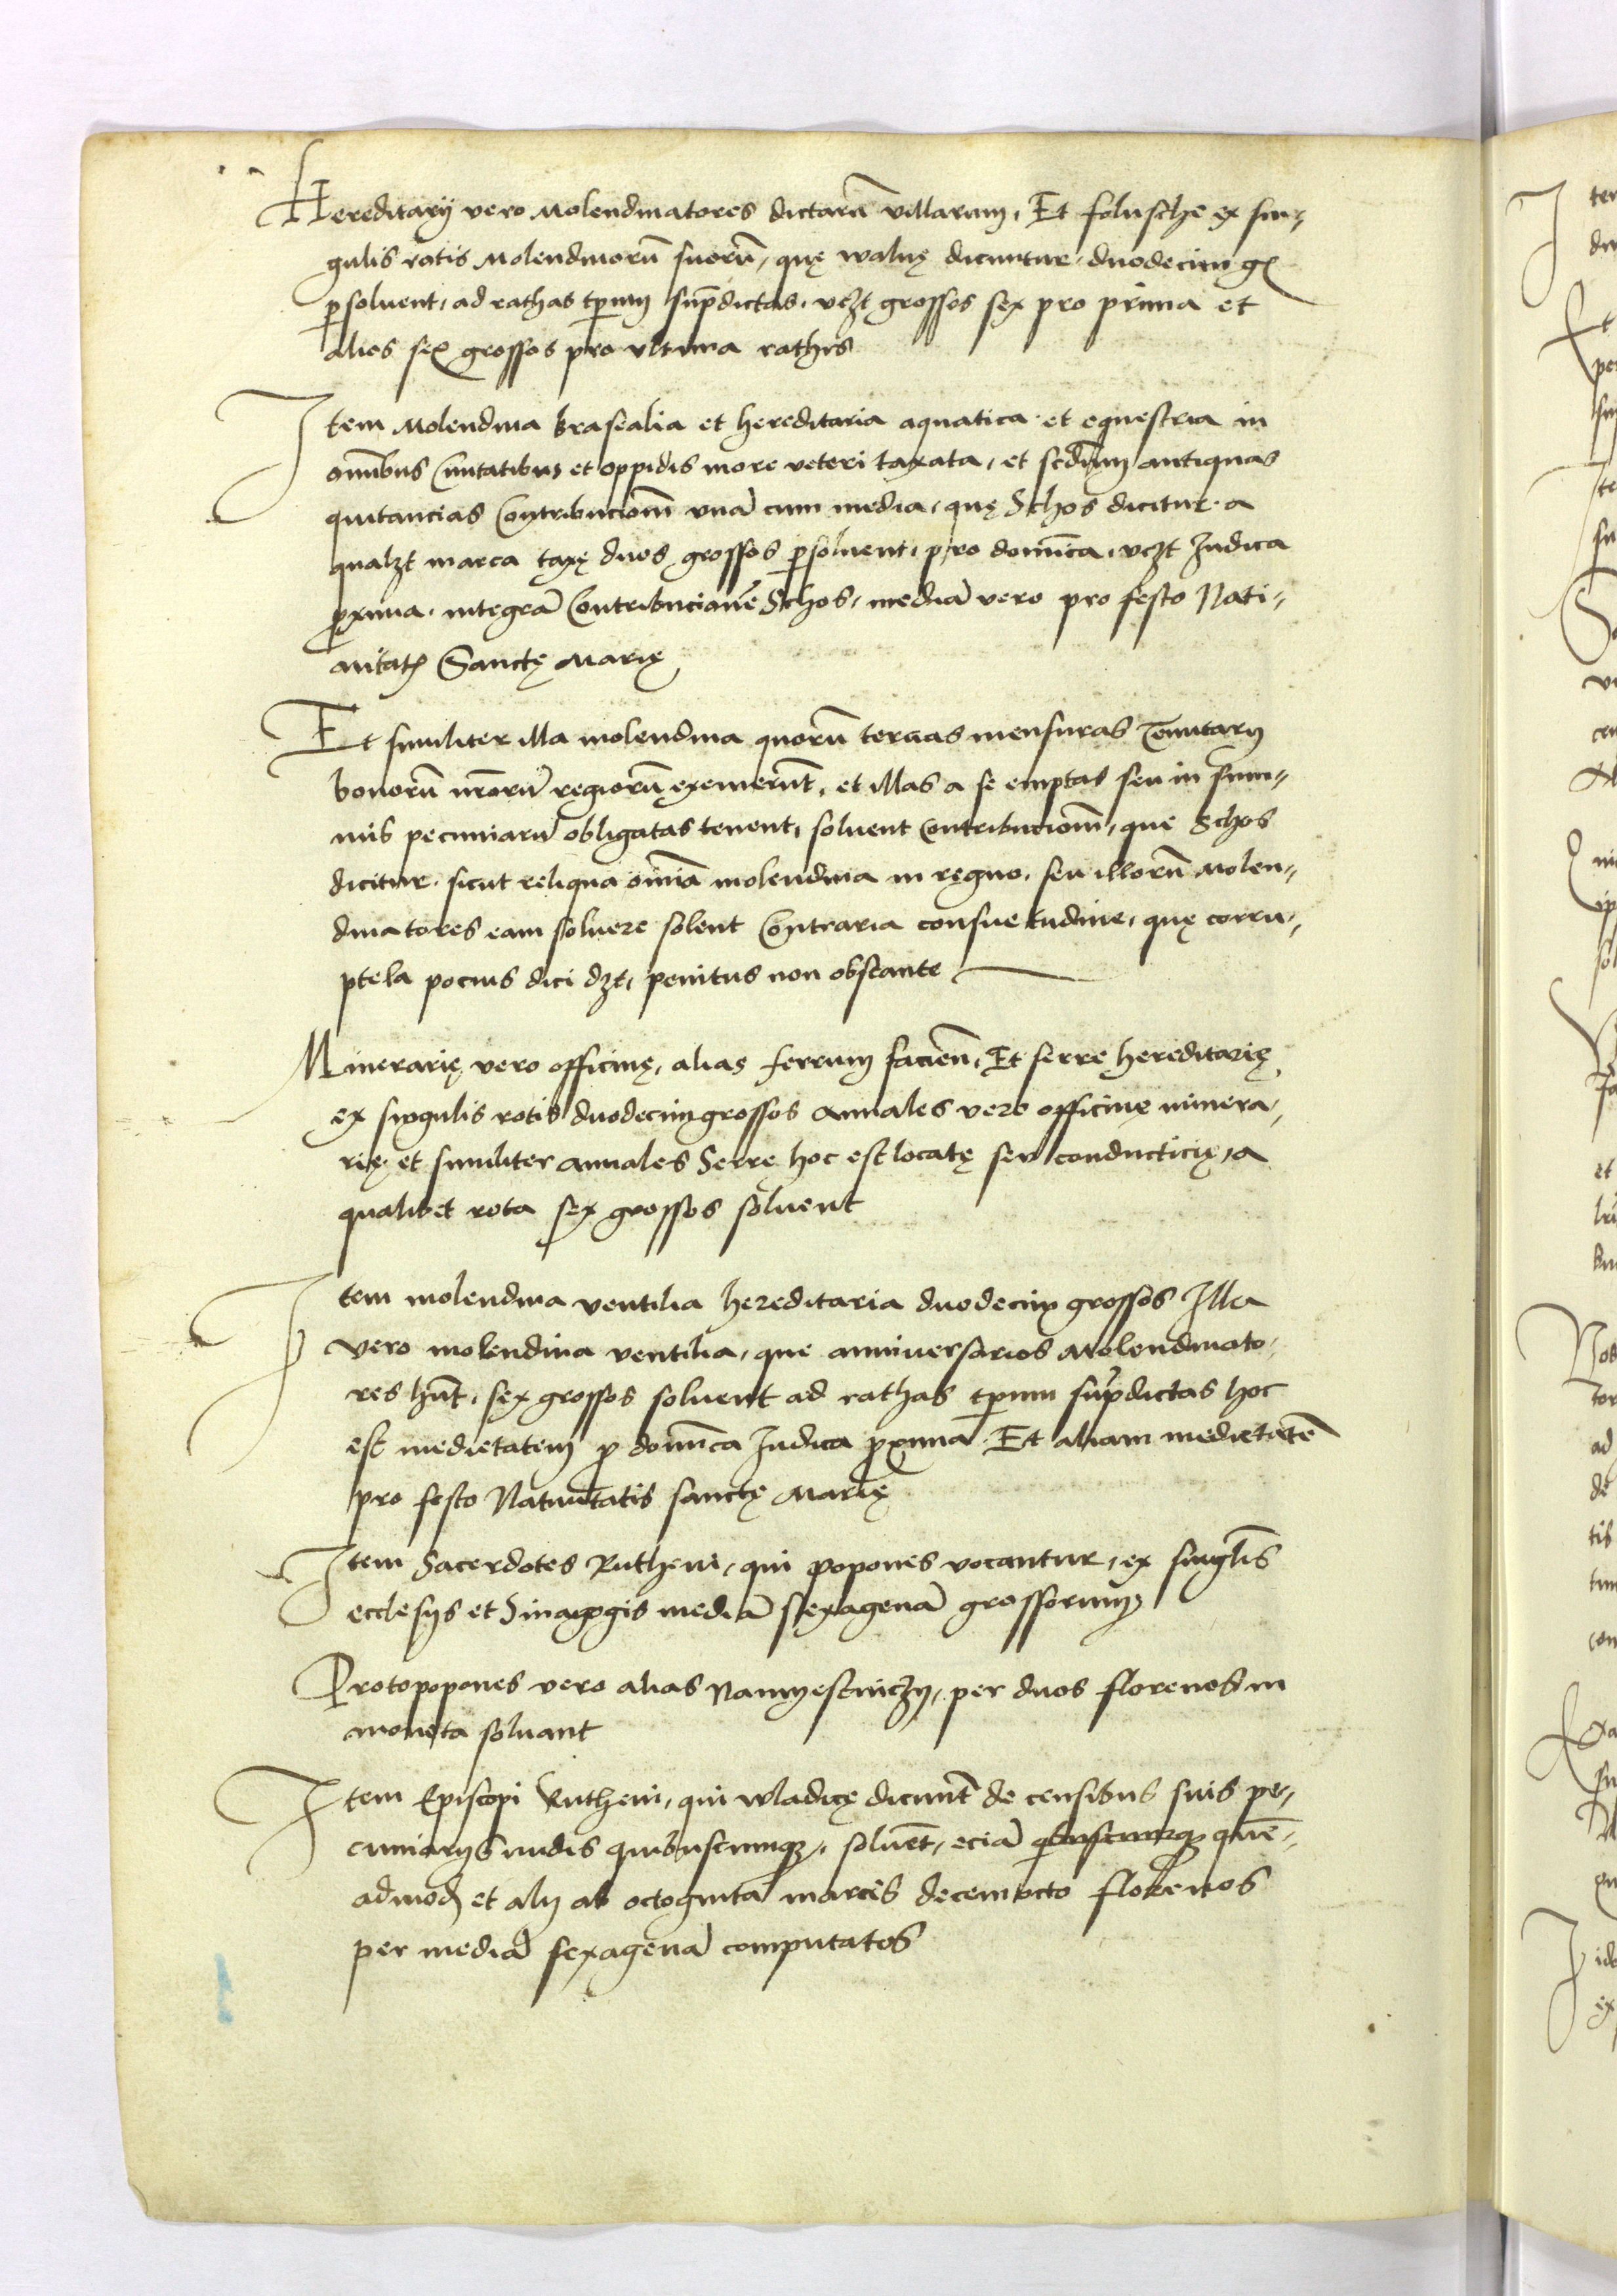 Hereditarij vero Molendinatores dictarū villarum, Et folusche ex sin-
gulis rotis Molendinorū suorū, quę waluę dicuntur, duodecim gr
ꝑsoluent, ad rathas tꝑum sup̄dictas, vꝫt grossos sex pro prima et
alios sex grossos pro vltima rathis
Item Molendina brasealia et hereditaria aquatica et equestria in
om̄ibus Ciuitatibus et oppidis more veteri taxata, et scd̄um antiquas
quitancias Contribucionē vnā cum media, quę Schos dicitur a
qualꝫt marca taxę duos grossos ꝑsoluent, pro domīca, vꝫt Iudica
ꝓxima, integrā Contribucionē Schos, mediā vero pro festo Nati-
uitatꝭ Sanctę Marię
Et similiter illa molendina quorū tercias mensuras Tenutarij
bonorū nr̄orū regiorū exemerūt, et illas a se emptas seu in sum-
mis pecuniarū obligatas tenent, soluent contribucionē, que Schos
dicitur, sicut reliqua om̄ia molendina in regno, seu illorū Molen-
dinatores eam soluere solent Contraria consuetudine, quę corru-
ptela pocius dici dꝫt, penitus non obstante
Minerarię vero officinę, alias ferrum facien̄, Et serre hereditarię
ex singulis rotis duodecim grossos Annales vero officinę minera-
rię, et similiter annales Serrę hoc est locatę seu conducticię, a
qualibet rota sex grossos soluent
Item molendina ventilia hereditaria duodecim grossos Illa
vero molendina ventilia, que anniuersarios Molendinato-
res hn̄t, sex grossos soluent ad rathas tꝑum sup̄dictas hoc
est medietatem ꝓ domīca Iudica ꝓxima Et aliam medietatē
pro festo Natiuitatis sanctę Marię
Item Sacerdotes Rutheni, qui popones vocantur, ex singl̄is
ecclesijs et Sinagogis mediā sexagenā grossorum
Protopopones vero alias Namyesniczy, per duos florenos in
moneta soluant
Item Episcopi Rutheni, qui wladicę dicunt̄ de censibus suis pe-
cuniarijs nudis quibuscumqꝫ, soluēt, eciā quibuscumqꝫ quē-
admodꝫ et alij ab octoginta marcis decem octo florenos
per mediā sexagenā computatos